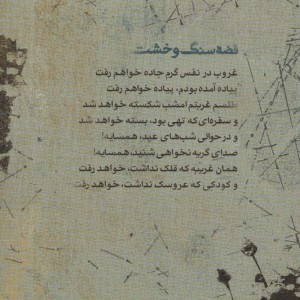 قصه سنگ و خشت
غروب در نفس گرم جاده خواهم رفت
پیاده آمده بودم، پیاده خواهم رفت
طلسم غربتم امشب شکسته خواهد شد
و سفره‌ای که تهی بود، بسته خواهد شد
و در حوالی شب‌های عید، همسایه!
صدای گریه نخواهی شنید، همسایه!
همان غریبه که قلک نداشت، خواهد رفت
و کودکی که عروسک نداشت، خواهد رفت